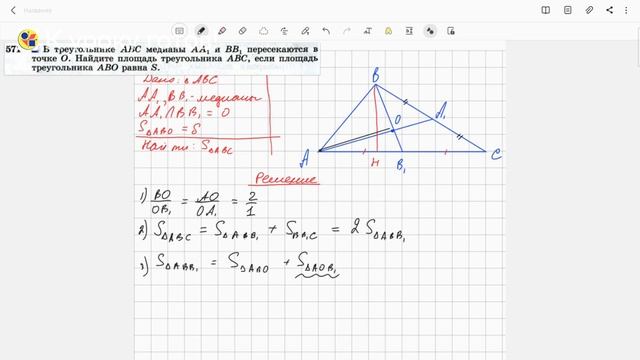 Название
571. В треугольнике ABC медианы AA₁ и BB₁ пересекаются в
точке O. Найдите площадь треугольника ABC, если площадь
треугольника ABO равна S.
Дано: △ABC
AA₁, BB₁ - медианы
AA₁ ∩ BB₁ = O
S△ABO = S
Найти: S△ABC
B
O
A₁
A
H
B₁
C
Решение
1) BO/OB₁ = AO/OA₁ = 2/1
2) S△ABC = S△ABB₁ + S△BB₁C = 2 S△ABB₁
3) S△ABB₁ = S△ABO + S△AOB₁